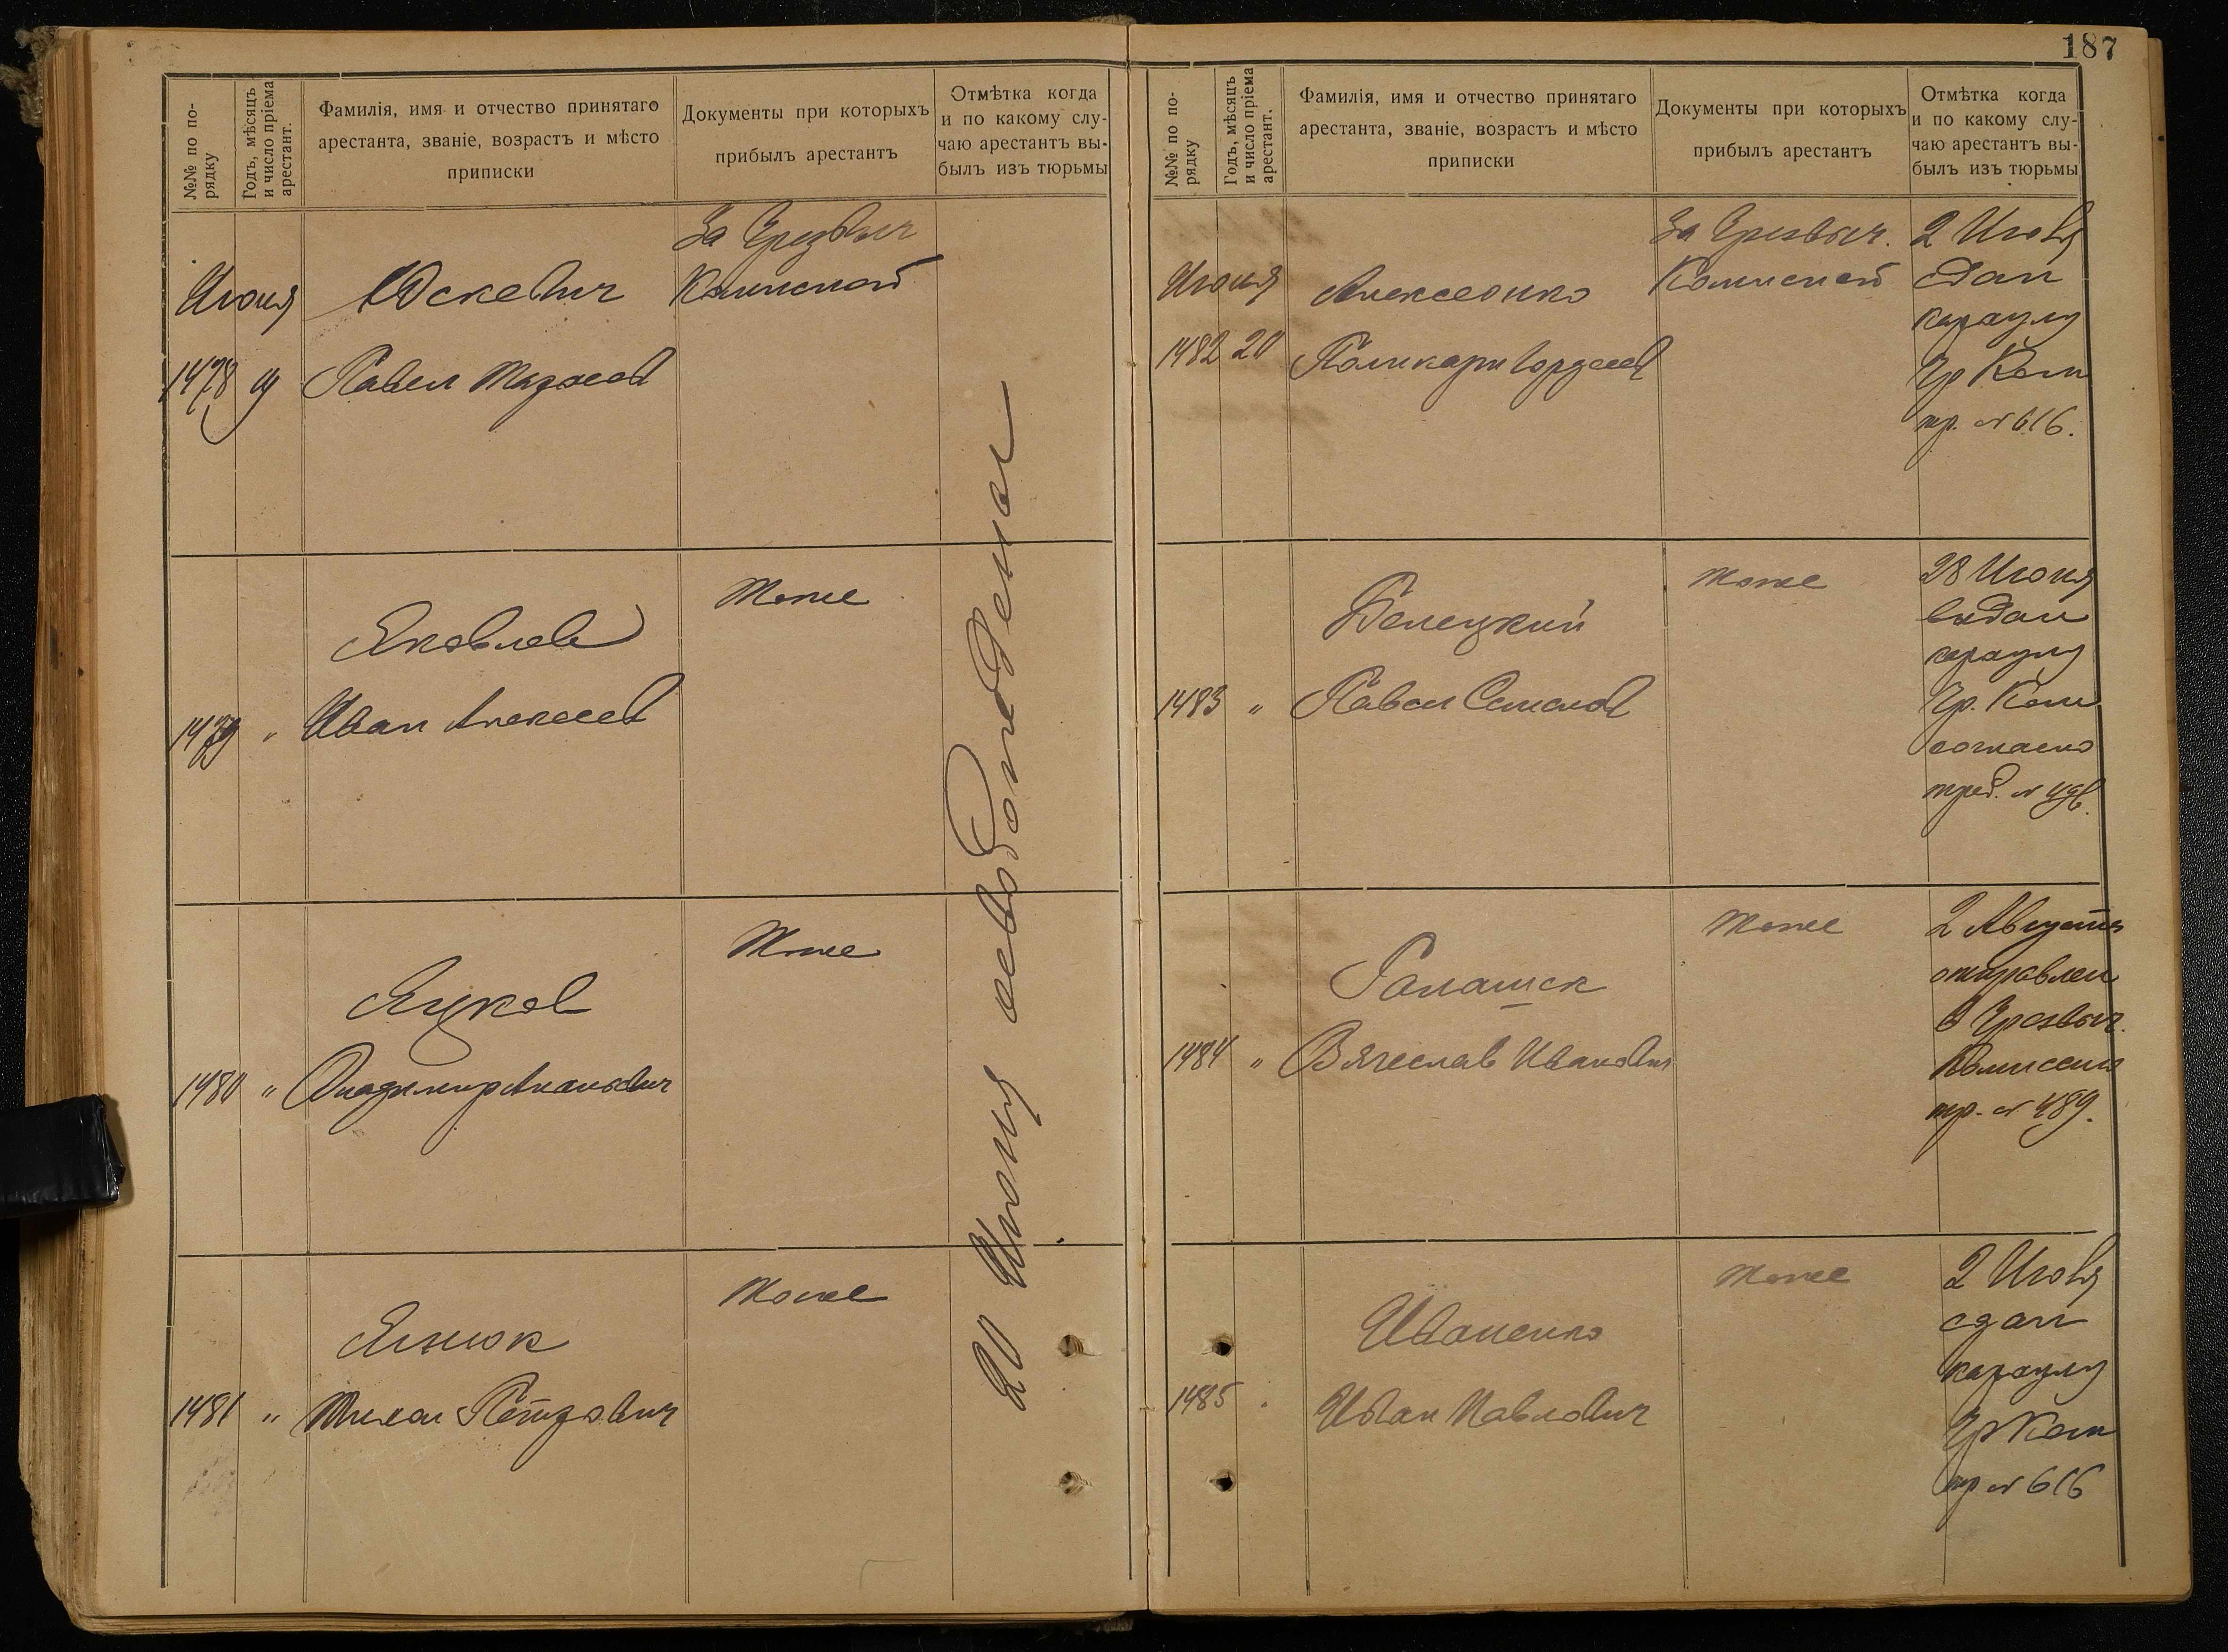 №№ по по-
рядку
Годъ, мѣсяцъ
и число пріема
арестант.
Фамилія, имя и отчество принятаго
арестанта, званіе, возрастъ и мѣсто
приписки
Документы при которыхъ
прибылъ арестантъ
Отмѣтка когда
и по какому слу-
чаю арестантъ вы-
былъ изъ тюрьмы
За Чрезвыч
Июня Юскевич Комиссией
1478 19 Павел
Тоже
Яковлев
1479 " Иван Алексеев
Тоже
Яцков
1480 " Владимир
Тоже
Янюк
1481 " Михаил Петрович
20 Июня освобожден
187
№№ по по-
рядку
Годъ, мѣсяцъ
и число пріема
арестант.
Фамилія, имя и отчество принятаго
арестанта, званіе, возрастъ и мѣсто
приписки
Документы при которыхъ
прибылъ арестантъ
Отмѣтка когда
и по какому слу-
чаю арестантъ вы-
былъ изъ тюрьмы
За Чрезвыч. 2 Июля
Июня Алексеенко Комиссией сдан
караулу
1482 20 Поликарп Гордеев Чр Ком
тр. № 616.
Тоже 28 Июня
выдан
Белецкий караулу
1483 " Павел Семенов Чр. Ком
согласно
треб. №
Тоже 2 Августа
отправлен
Ромашек в Чрезвыч.
1484 " Вячеслав Иванович Комиссию
тр. № 489.
Тоже 2 Июля
сдан
Иваненко караулу
1485 " Иван Павлович Чр Ком
тр № 616